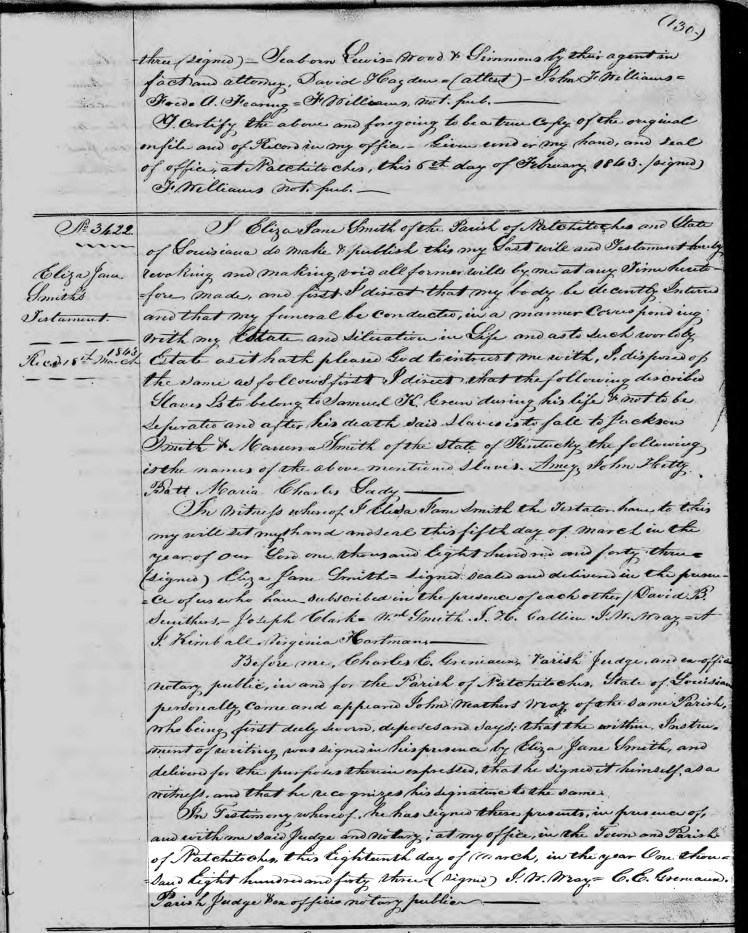 (130.)
three (signed) = Seaborn Lewis = Wood & Simmons by their agent in
fact and attorney, David Hayden = (attest) - John F Williams =
Fredk A. Fearing = F Williams, not. pub. —
I certify the above and foregoing to be a true Copy of the original
onfile and of Record in my office - Given under my hand, and seal
of office, at Natchitoches, this 6th day of February 1843. (signed)
F. Williams not. pub. —
No 3422.
Eliza Jane
Smith's
Testament.
Recd 18th March 1843
I Eliza Jane Smith of the Parish of Natchitoches and State
of Louisiana do make & publish this my Last will and Testament hereby
revoking and making void all former wills by me at any Time hereto-
=fore made, and first I direct that my body be decently Interred
and that my funeral be conducted, in a manner Corresponding
with my Estate and situation in Life and as to such worldly
Estate as it hath pleased God to entrust me with, I dispose of
the same as follows first I direct that the following described
Slaves is to belong to Samuel K. Green during his life & not to be
seperated and after his death said slaves is to fall to Jackson
Smith & Smith of the State of Kentucky the following
is the names of the above mentioned slaves. Amey John Hetty
Batt Maria Charles Lady —
In Witness whereof I Eliza Jane Smith the Testator have to this
my will set my hand and seal this fifth day of March in the
year of our Lord one thousand Eight hundred and forty three =
(signed) Eliza Jane Smith = signed sealed and delivered in the presen-
=ce of us who have subscribed in the presence of each other / David B.
Smithers,- Joseph Clark = Wm Smith. J. H. J. W. Wray = A
J. Kimball. Virginia Hartman, —
Before me, Charles E. Greneaux, Parish Judge, and ex-officio
notary public, in and for the Parish of Natchitoches, State of Louisiana
personally came and appeared John Mathers Wray of the same Parish,
who being first duly sworn, deposes and says; that the within Instru-
ment of writing was signed in his presence by Eliza Jane Smith, and
delivered for the purposes therein expressed, that he signed it himself, as a
witness, and that he recognizes, his signature to the same.
In Testimony whereof, he has signed these presents, in presence of,
and with me said Judge and notary; at my office, in the Town and Parish
of Natchitoches, this Eighteenth day of March, in the year One thou=
=sand Eight hundred and forty three (signed) J. W. Wray = C. E. Greneaux.
Parish Judge & ex officio notary public —